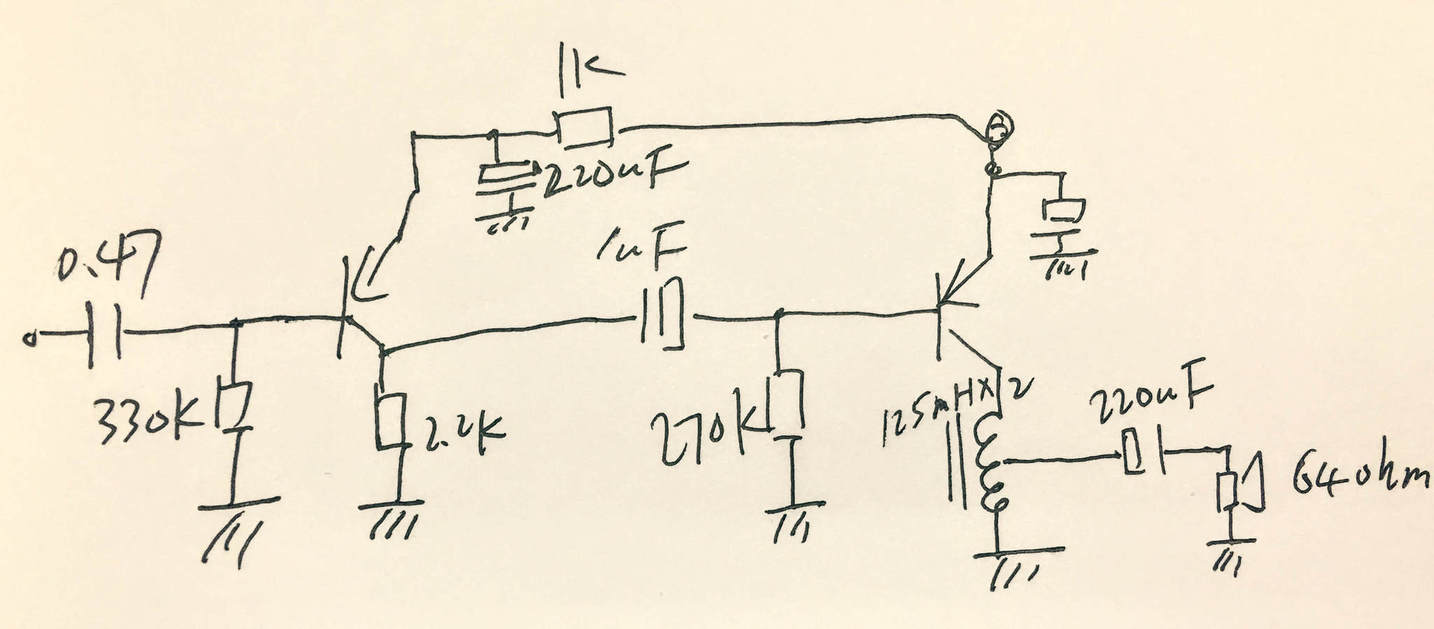 1K
220uF
0.47
1uF
330K
2.2K
270K
125mH×2
220uF
64ohm